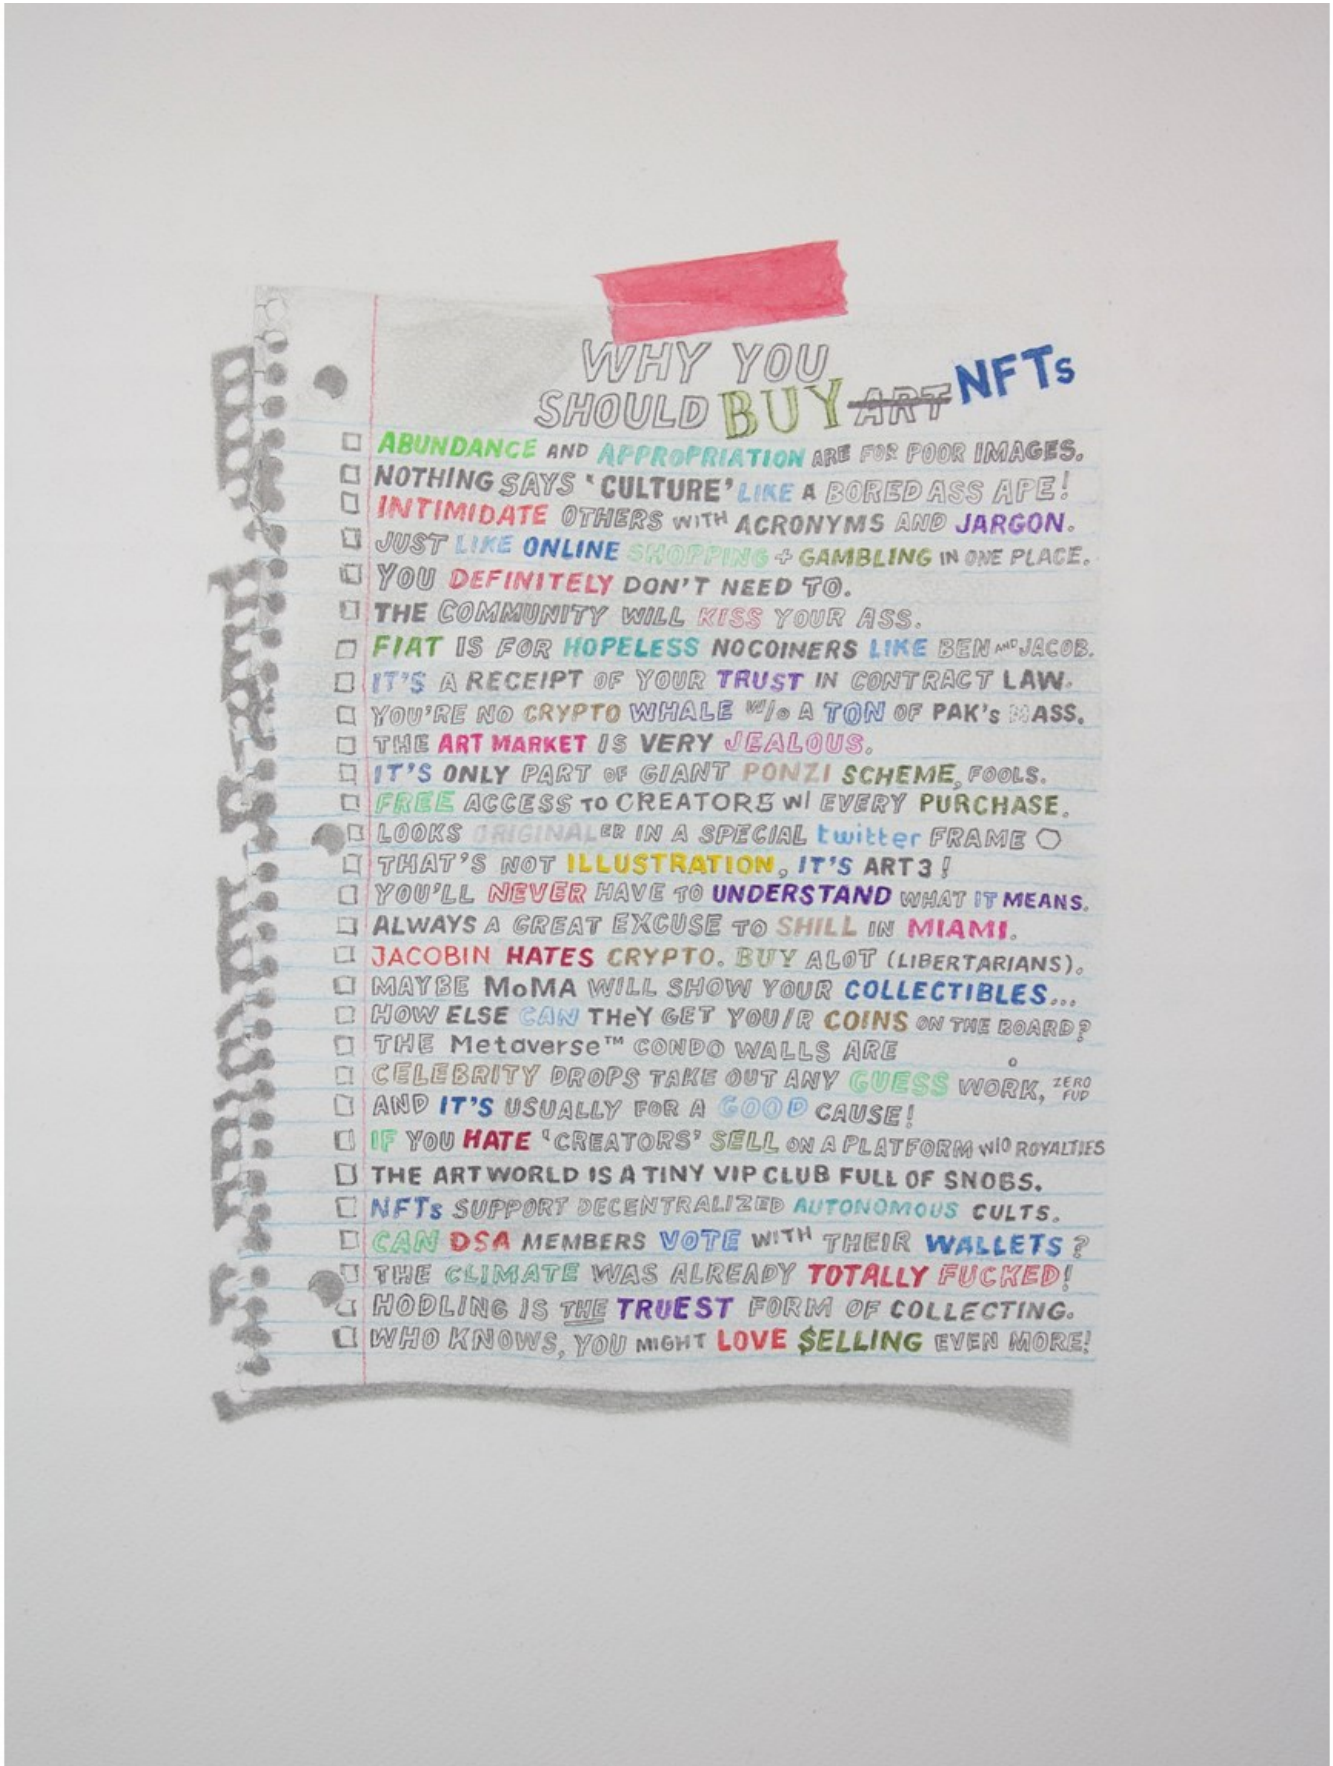 WHY YOU
SHOULD BUY ART NFTs
ABUNDANCE AND APPROPRIATION ARE FOR POOR IMAGES.
NOTHING SAYS 'CULTURE' LIKE A BORED ASS APE!
INTIMIDATE OTHERS WITH ACRONYMS AND JARGON.
JUST LIKE ONLINE SHOPPING + GAMBLING IN ONE PLACE.
YOU DEFINITELY DON'T NEED TO.
THE COMMUNITY WILL KISS YOUR ASS.
FIAT IS FOR HOPELESS NOCOINERS LIKE BEN AND JACOB.
IT'S A RECEIPT OF YOUR TRUST IN CONTRACT LAW.
YOU'RE NO CRYPTO WHALE W/o A TON OF PAK's MASS.
THE ART MARKET IS VERY JEALOUS.
IT'S ONLY PART OF GIANT PONZI SCHEME, FOOLS.
FREE ACCESS TO CREATORS W/ EVERY PURCHASE.
LOOKS ORIGINALER IN A SPECIAL twitter FRAME
THAT'S NOT ILLUSTRATION, IT'S ART3!
YOU'LL NEVER HAVE TO UNDERSTAND WHAT IT MEANS.
ALWAYS A GREAT EXCUSE TO SHILL IN MIAMI.
JACOBIN HATES CRYPTO. BUY ALOT (LIBERTARIANS).
MAYBE MoMA WILL SHOW YOUR COLLECTIBLES...
HOW ELSE CAN THeY GET YOU/R COINS ON THE BOARD?
THE Metaverse™ CONDO WALLS ARE .
CELEBRITY DROPS TAKE OUT ANY GUESS WORK, ZERO FUD
AND IT'S USUALLY FOR A GOOD CAUSE!
IF YOU HATE 'CREATORS' SELL ON A PLATFORM W/O ROYALTIES
THE ART WORLD IS A TINY VIP CLUB FULL OF SNOBS.
NFTs SUPPORT DECENTRALIZED AUTONOMOUS CULTS.
CAN DSA MEMBERS VOTE WITH THEIR WALLETS?
THE CLIMATE WAS ALREADY TOTALLY FUCKED!
HODLING IS THE TRUEST FORM OF COLLECTING.
WHO KNOWS, YOU MIGHT LOVE $ELLING EVEN MORE!